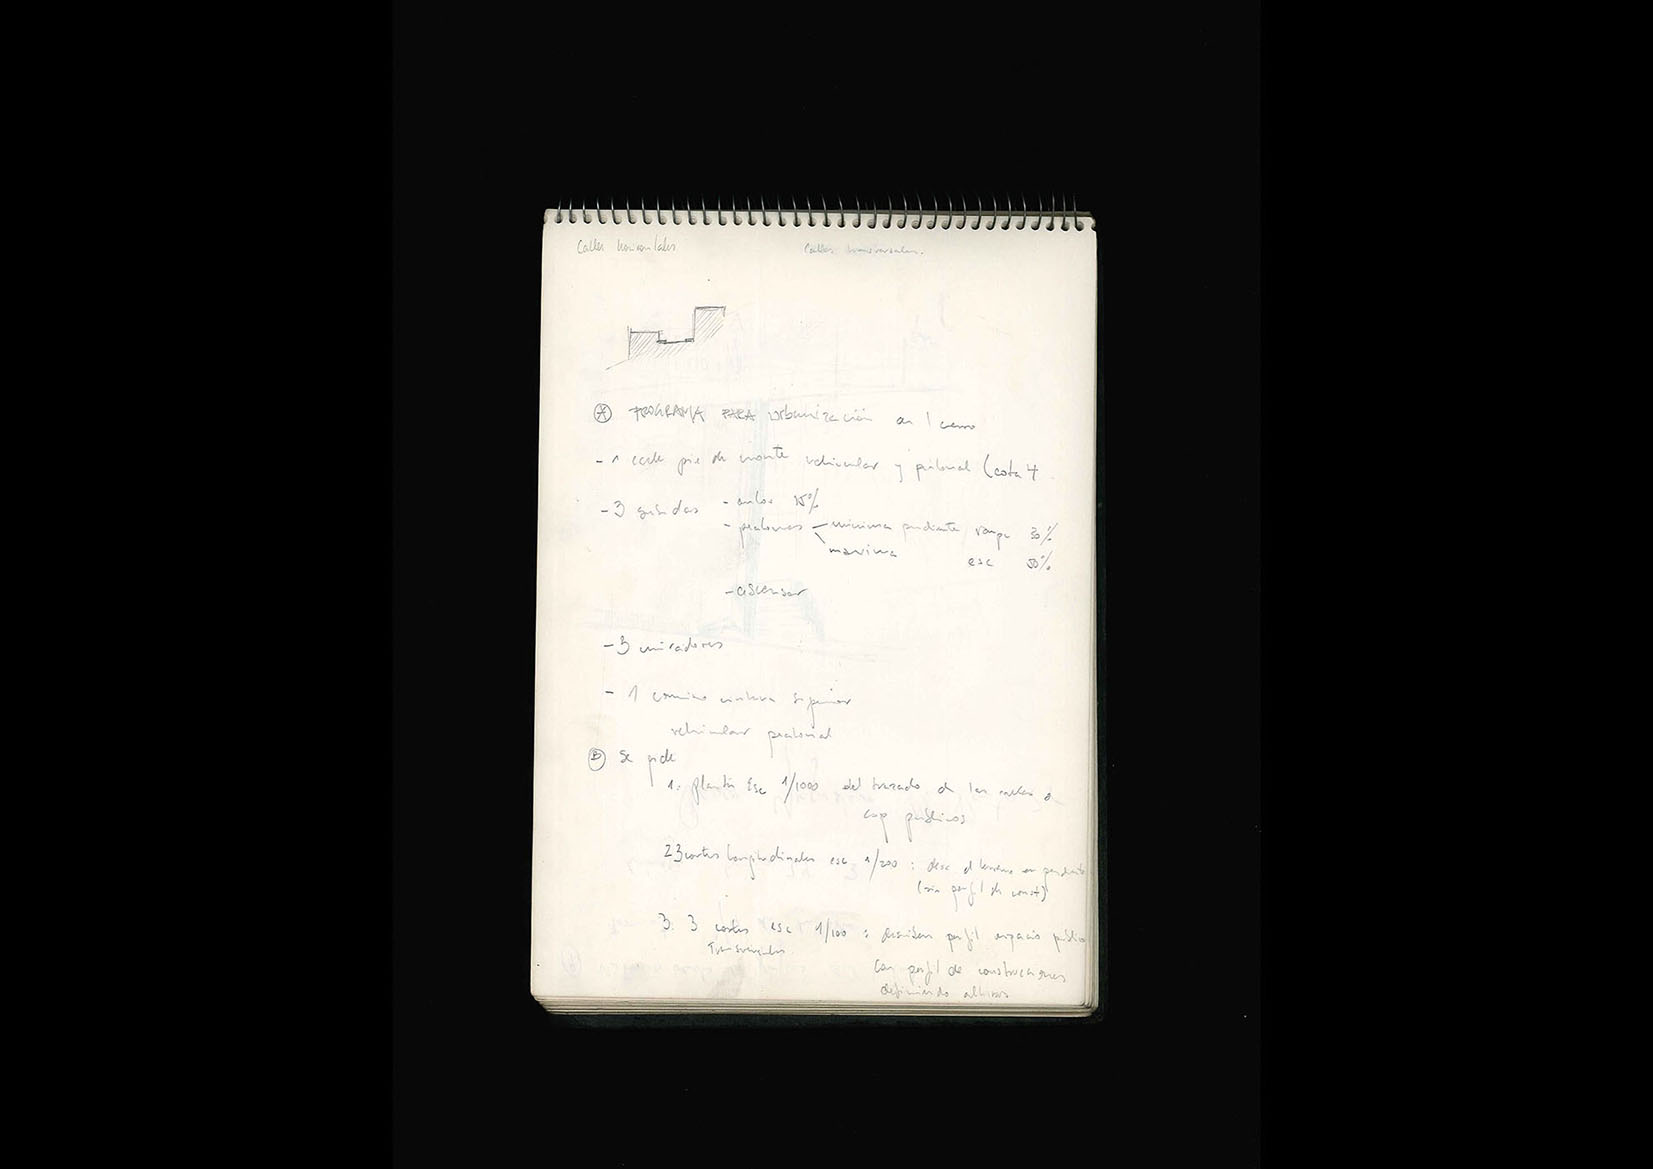 Calles horizontales
Calles transversales.
A PROGRAMA PARA urbanización en 1 cerro
- 1 calle pie de monte vehicular y peatonal (cota 4
- 3 subidas - autos 15%
- peatones - minima pendiente rampa 30%
maxima esc 50%
- ascensor
- 3 miradores
- 1 camino cintura superior
vehicular peatonal
B Se pide
1. planta Esc 1/1000 del trazado de las calles o
esp públicos
2 3 cortes longitudinales esc 1/200 : desc el terreno en pendiente
(sin perfil de const)
3. 3 cortes esc 1/100 : perfil espacio público
Transversales.
Con perfil de construcciones
definiendo alturas